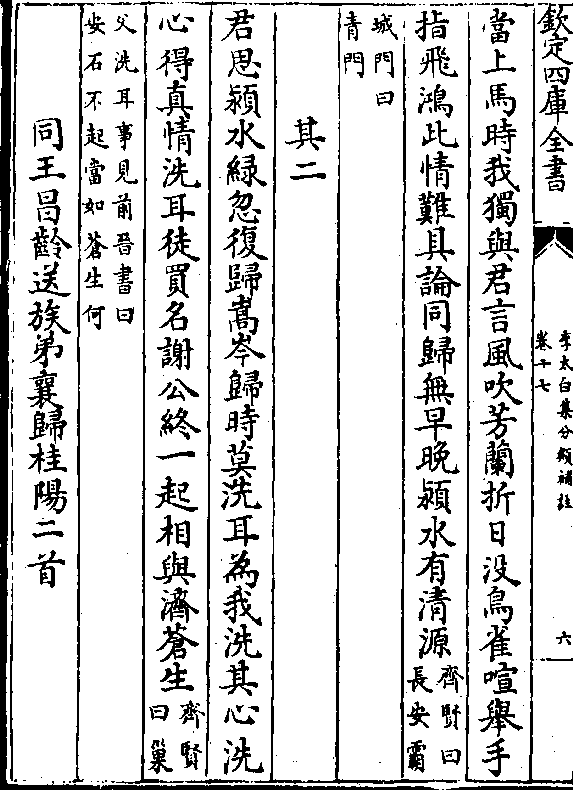 欽定四庫全書
李太白集分類補註
卷十七
六
當上馬時我獨與君言風吹芳蘭折日没鳥雀喧舉手
指飛鴻此情難具論同歸無早晚潁水有清源
齊賢曰
長安霸
城門曰
青門
其二
君思潁水緑忽復歸嵩岑歸時莫洗耳為我洗其心洗
心得真情洗耳徒買名謝公終一起相與濟蒼生
齊賢
曰巢
父洗耳事見前晉書曰
安石不起當如蒼生何
同王昌齡送族弟襄歸桂陽二首